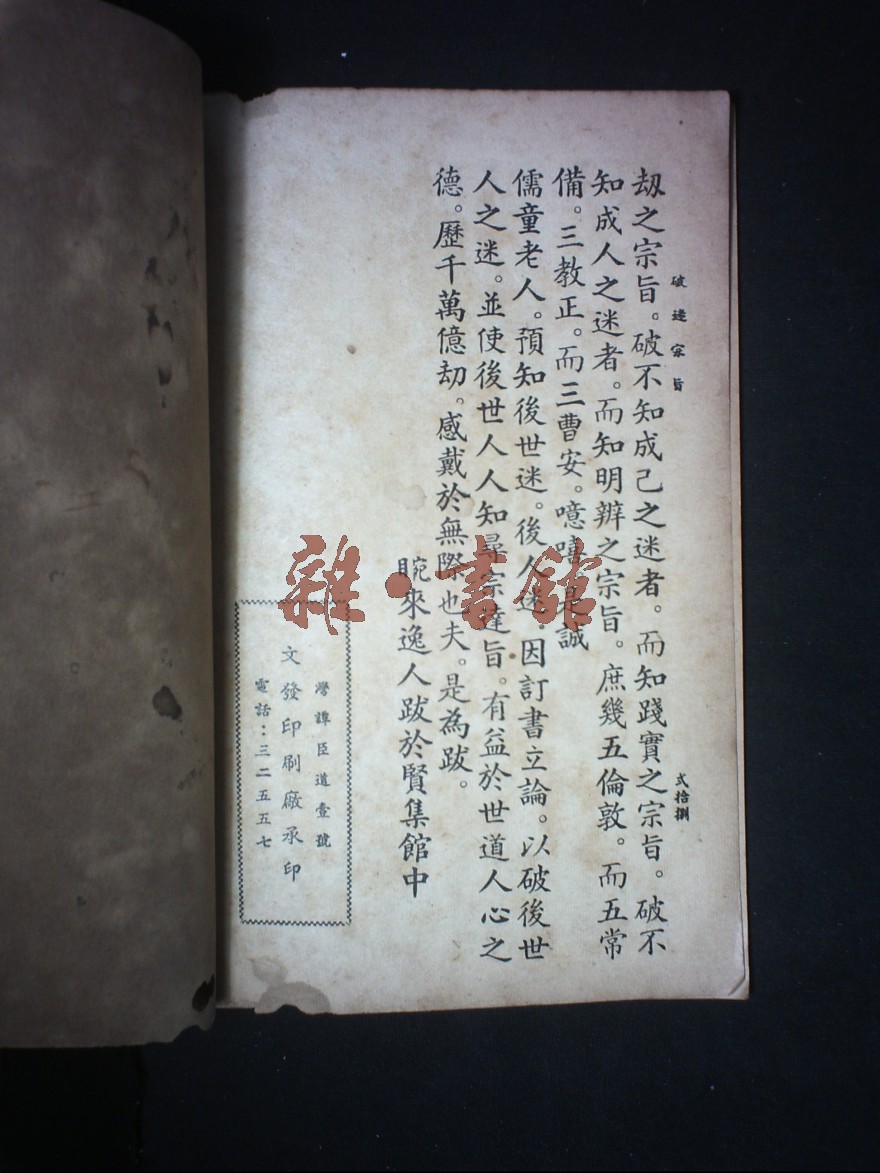 破迷宗旨
弍拾捌
刼之宗旨。破不知成己之迷者。而知踐實之宗旨。破不
知成人之迷者。而知明辨之宗旨。庶幾五倫敦。而五常
備。三教正。而三曹安。噫嘻是誠
儒童老人。預知後世迷。後人迷。因訂書立論。以破後世
人之迷。並使後世人人知尋宗達旨。有益於世道人心之
德。歷千萬億劫。感戴於無際也夫。是為跋。
晼來逸人跋於賢集館中
灣譚臣道壹號
文發印刷廠承印
電話：三二五五七
雜·書館